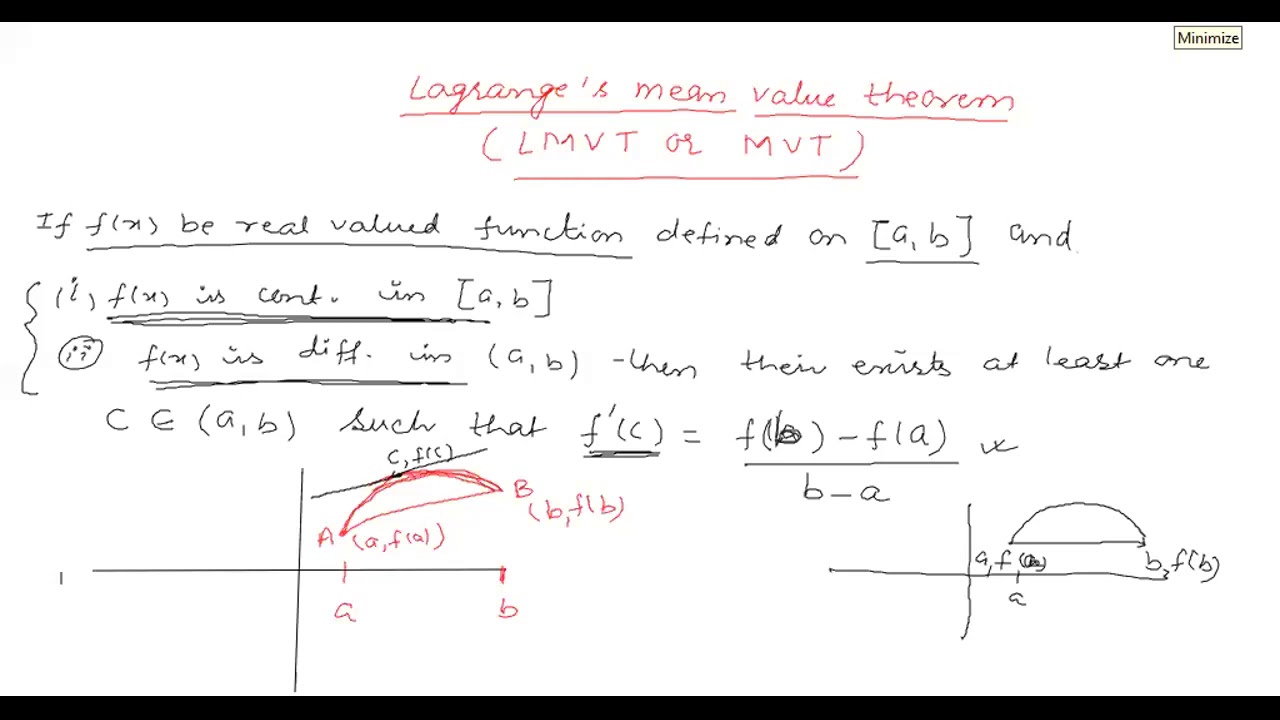 Minimize
Lagrange's mean value theorem
(LMVT or MVT)
If f(x) be real valued function defined on [a, b] and
(i) f(x) is cont. in [a, b]
(ii) f(x) is diff. in (a, b) then their exists at least one
C ∈ (a, b) such that f'(c) = f(b) - f(a)
b - a
C, f(c)
B
(b, f(b)
A (a, f(a)
a, f(a)
b, f(b)
a
a
b